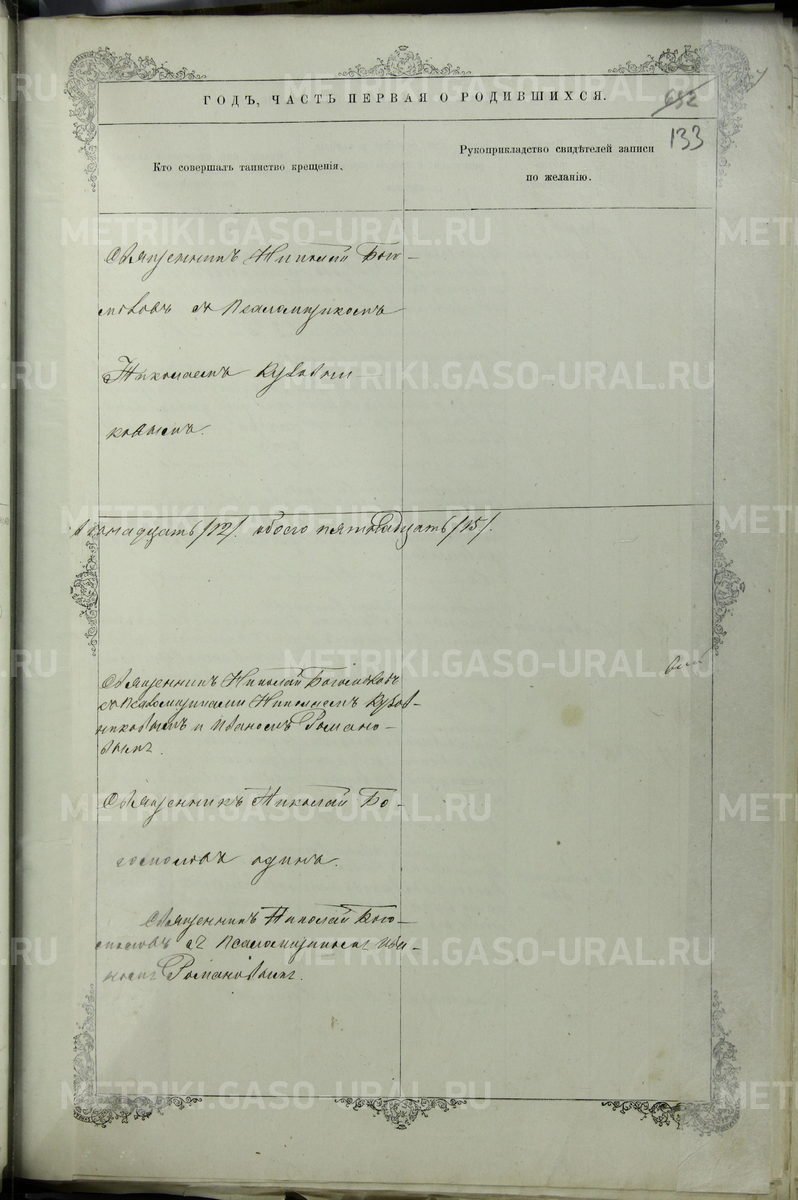 ГОДЪ, ЧАСТЬ ПЕРВАЯ О РОДИВШИХСЯ.
652
133
Кто совершалъ таинство крещенія.
Рукоприкладство свидѣтелей записи
по желанію.
Священникъ Николай Бого-
словъ съ Псаломщикомъ
Николаемъ
ковымъ.
двѣнадцать /12/. обоего пятнадцать /15/.
Священникъ Николай Богословъ
съ Псаломщиками Николаемъ
никовымъ и Иваномъ Романо-
вымъ.
Священникъ Николай Бо-
гословъ одинъ.
Священникъ Николай Бого-
словъ съ Псаломщикомъ Ива-
номъ Романовымъ.
METRIKI.GASO-URAL.RU